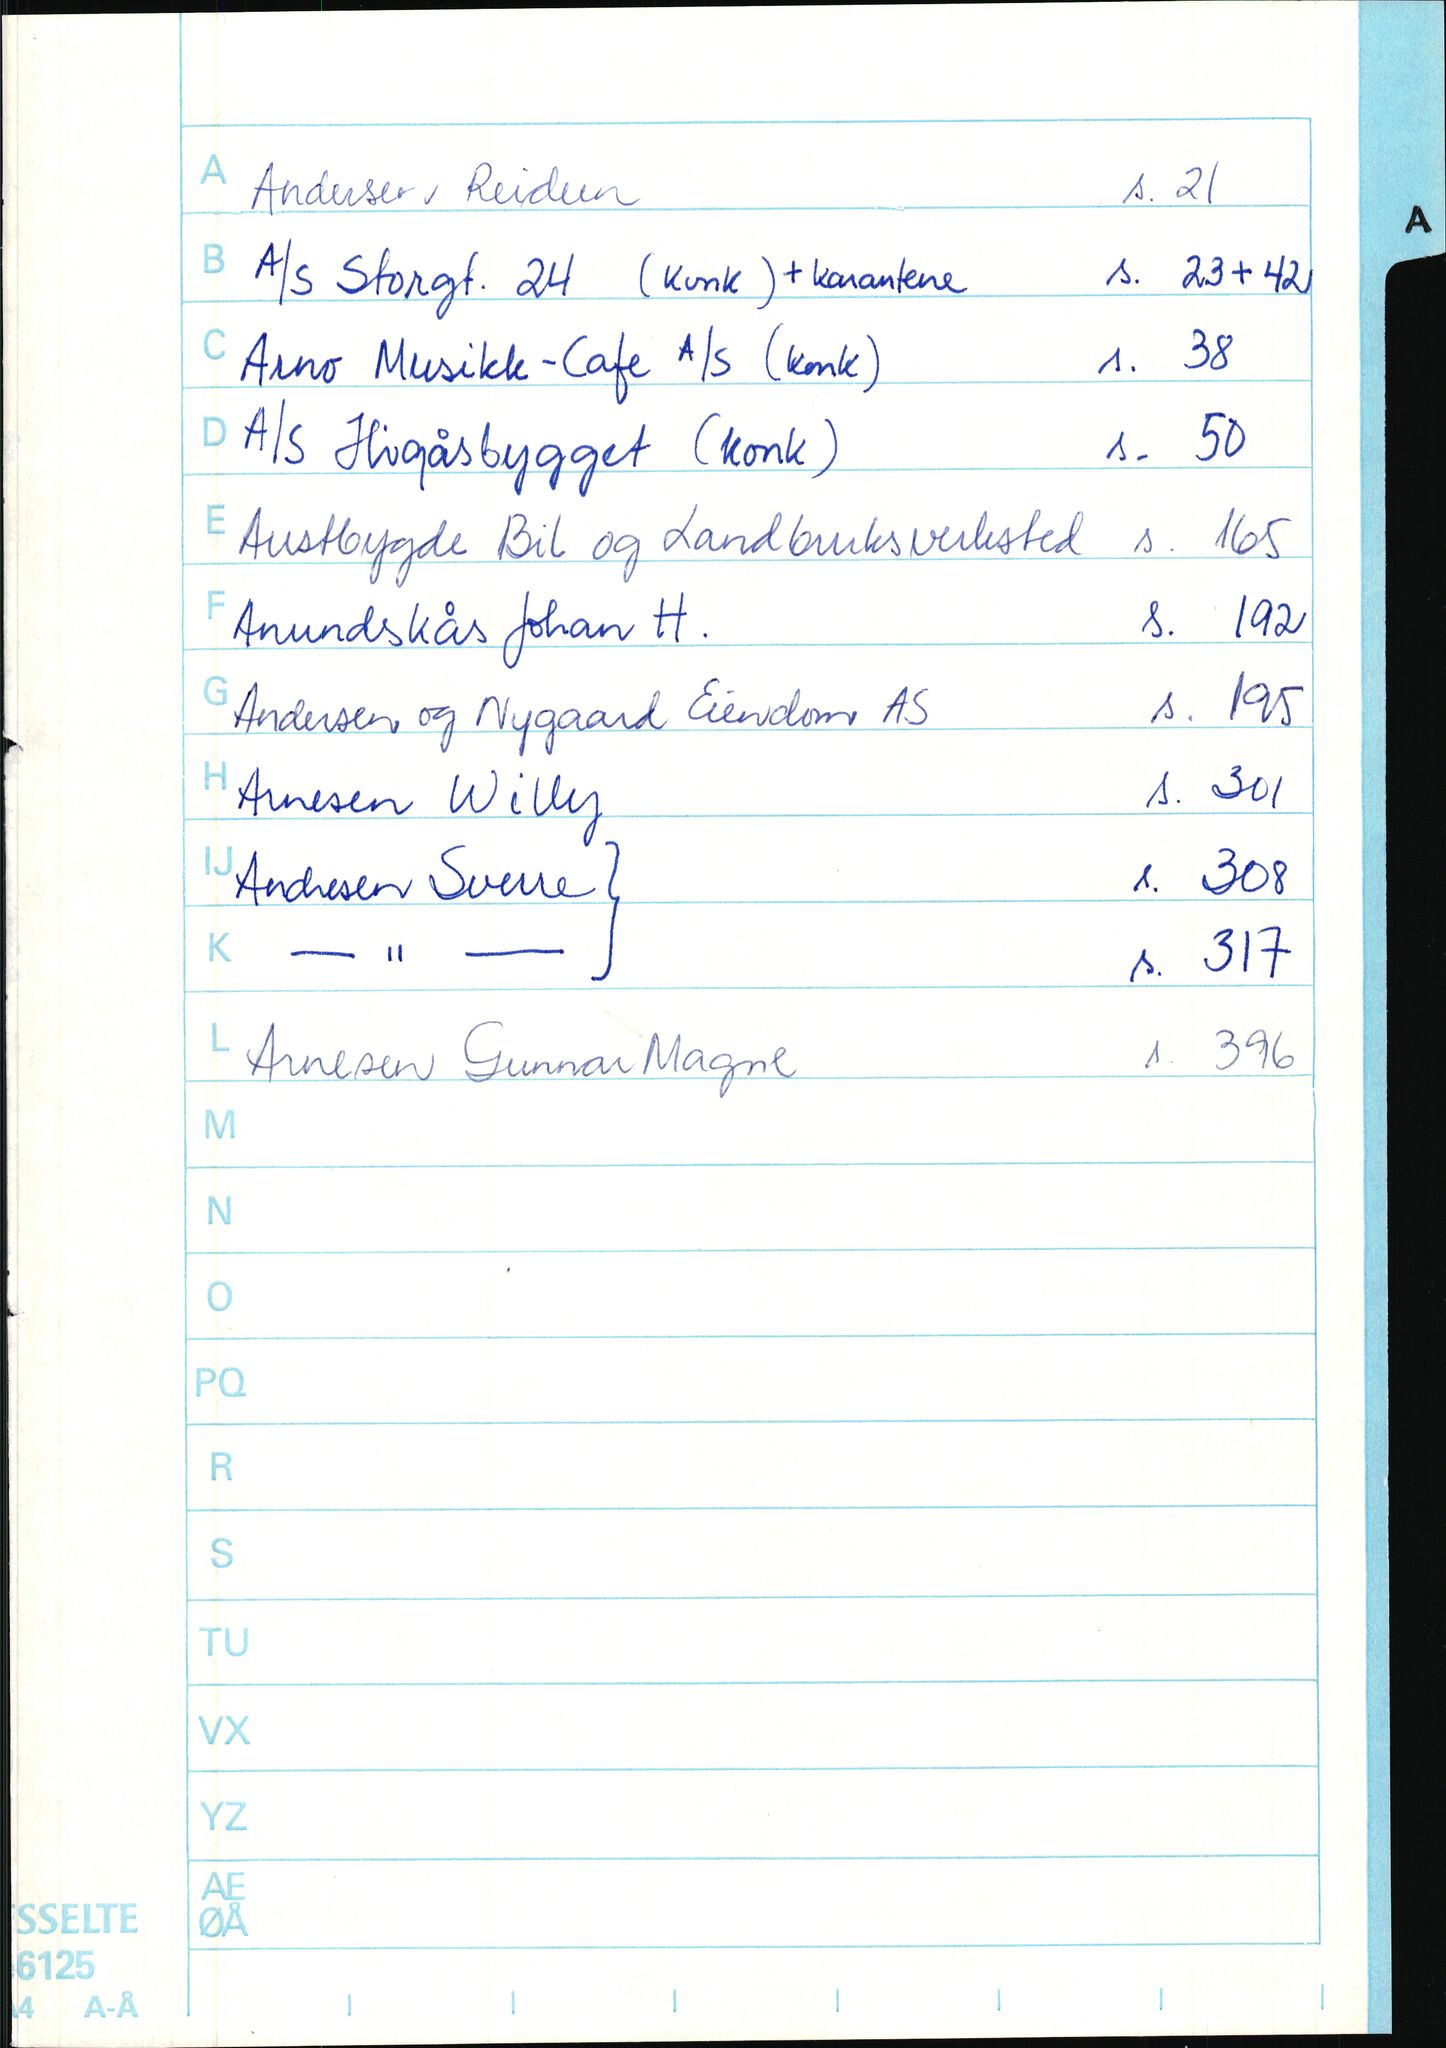 A Andersen, Reidun s. 21
B A/S Storgt. 24 (konk) + karantene s. 23+42
C Arno Musikk-Cafe A/S (konk) s. 38
D A/S Hvigåsbygget (konk) s. 50
E Austbygde Bil og Landbruksverksted s. 165
F Anundskås Johan H. s. 192
G Andersen og Nygaard Eiendom AS s. 195
H Arnesen Willy s. 301
IJ Andresen Sverre } s. 308
K — " — s. 317
L Arnesen Gunnar Magne s. 396
M
N
O
PQ
R
S
TU
VX
YZ
AE
ØÅ
A
SSELTE
6125
4 A-Å